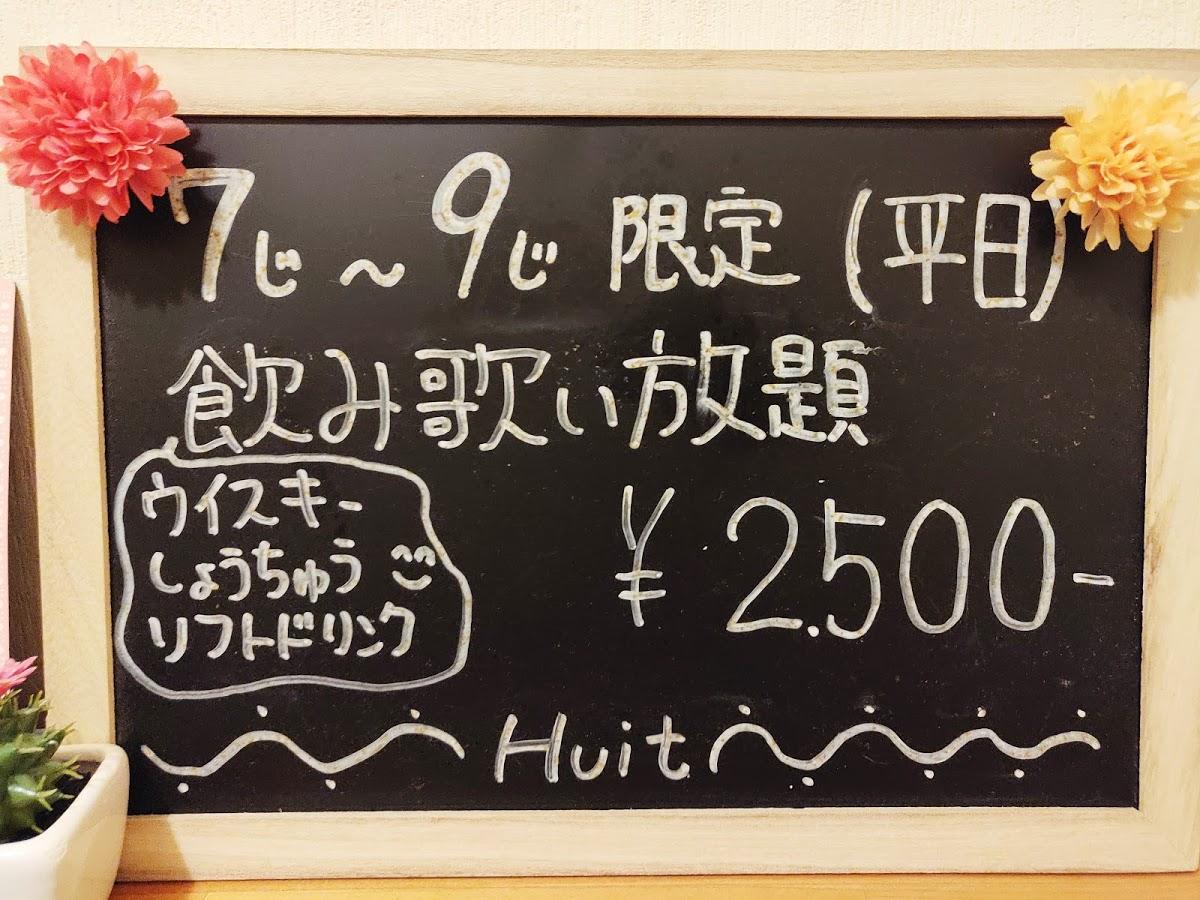 7じ～9じ 限定 (平日)
飲み歌い放題
ウイスキー
しょうちゅう
ソフトドリンク
¥2.500-
Huit